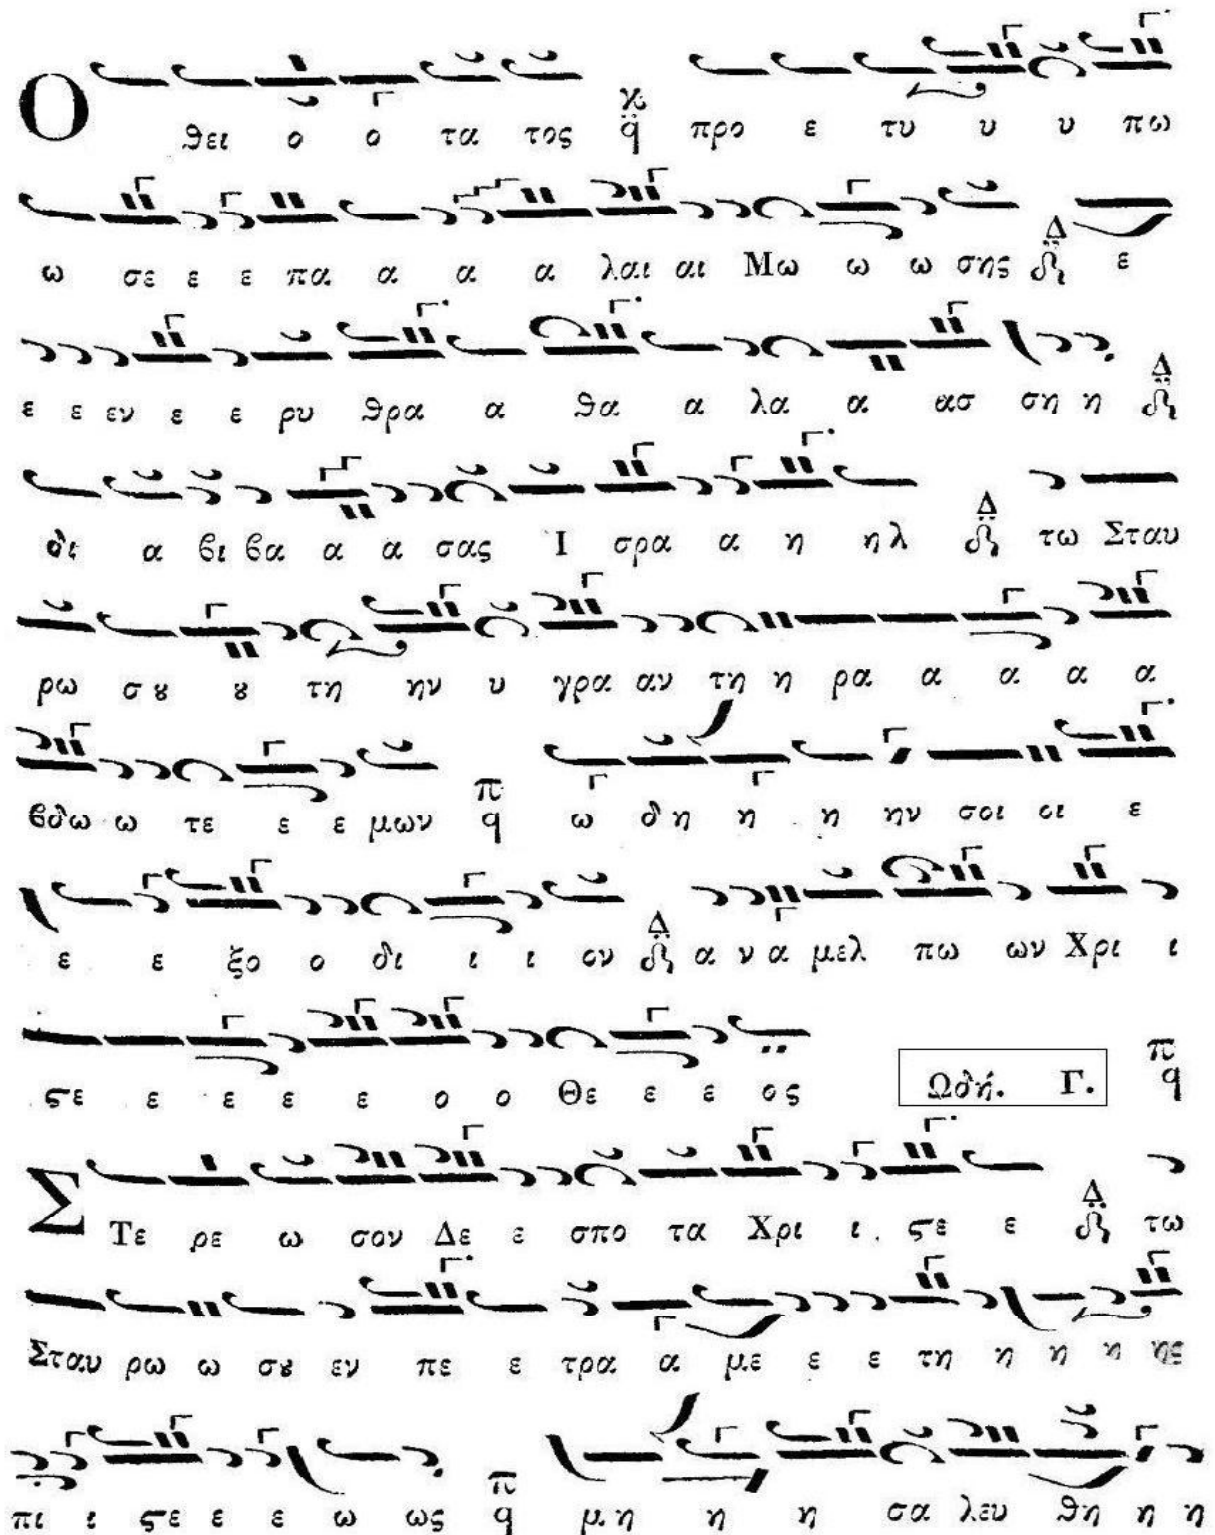 Ο θει ο ο τα τος κ̈ q προ ε τυ υ υ πω
ω σε ε ε πα α α α λαι αι Μω ω ω σης Δ ε
ε ε εν ε ε ρυ θρα α θα α λα α ασ ση η Δ
δι α βι βα α α σας Ι σρα α η ηλ Δ τω Σταυ
ρω σȣ ȣ τη ην υ γρα αν τη η ρα α α α α
βδω ω τε ε ε μων π q ω δη η η ην σοι οι ε
ε ε ξο ο δι ι ι ον Δ α ν α μελ πω ων Χρι ι
ϛε ε ε ε ε ο ο Θε ε ε ος Ωδή. Γ. π q
Σ Τε ρε ω σον Δε ε σπο τα Χρι ι. ϛε ε Δ τω
Σταυ ρω ω σȣ εν πε ε τρα α με ε ε τη η η η ης
πι ι ϛε ε ε ω ως π q μη η η σα λευ θη η η